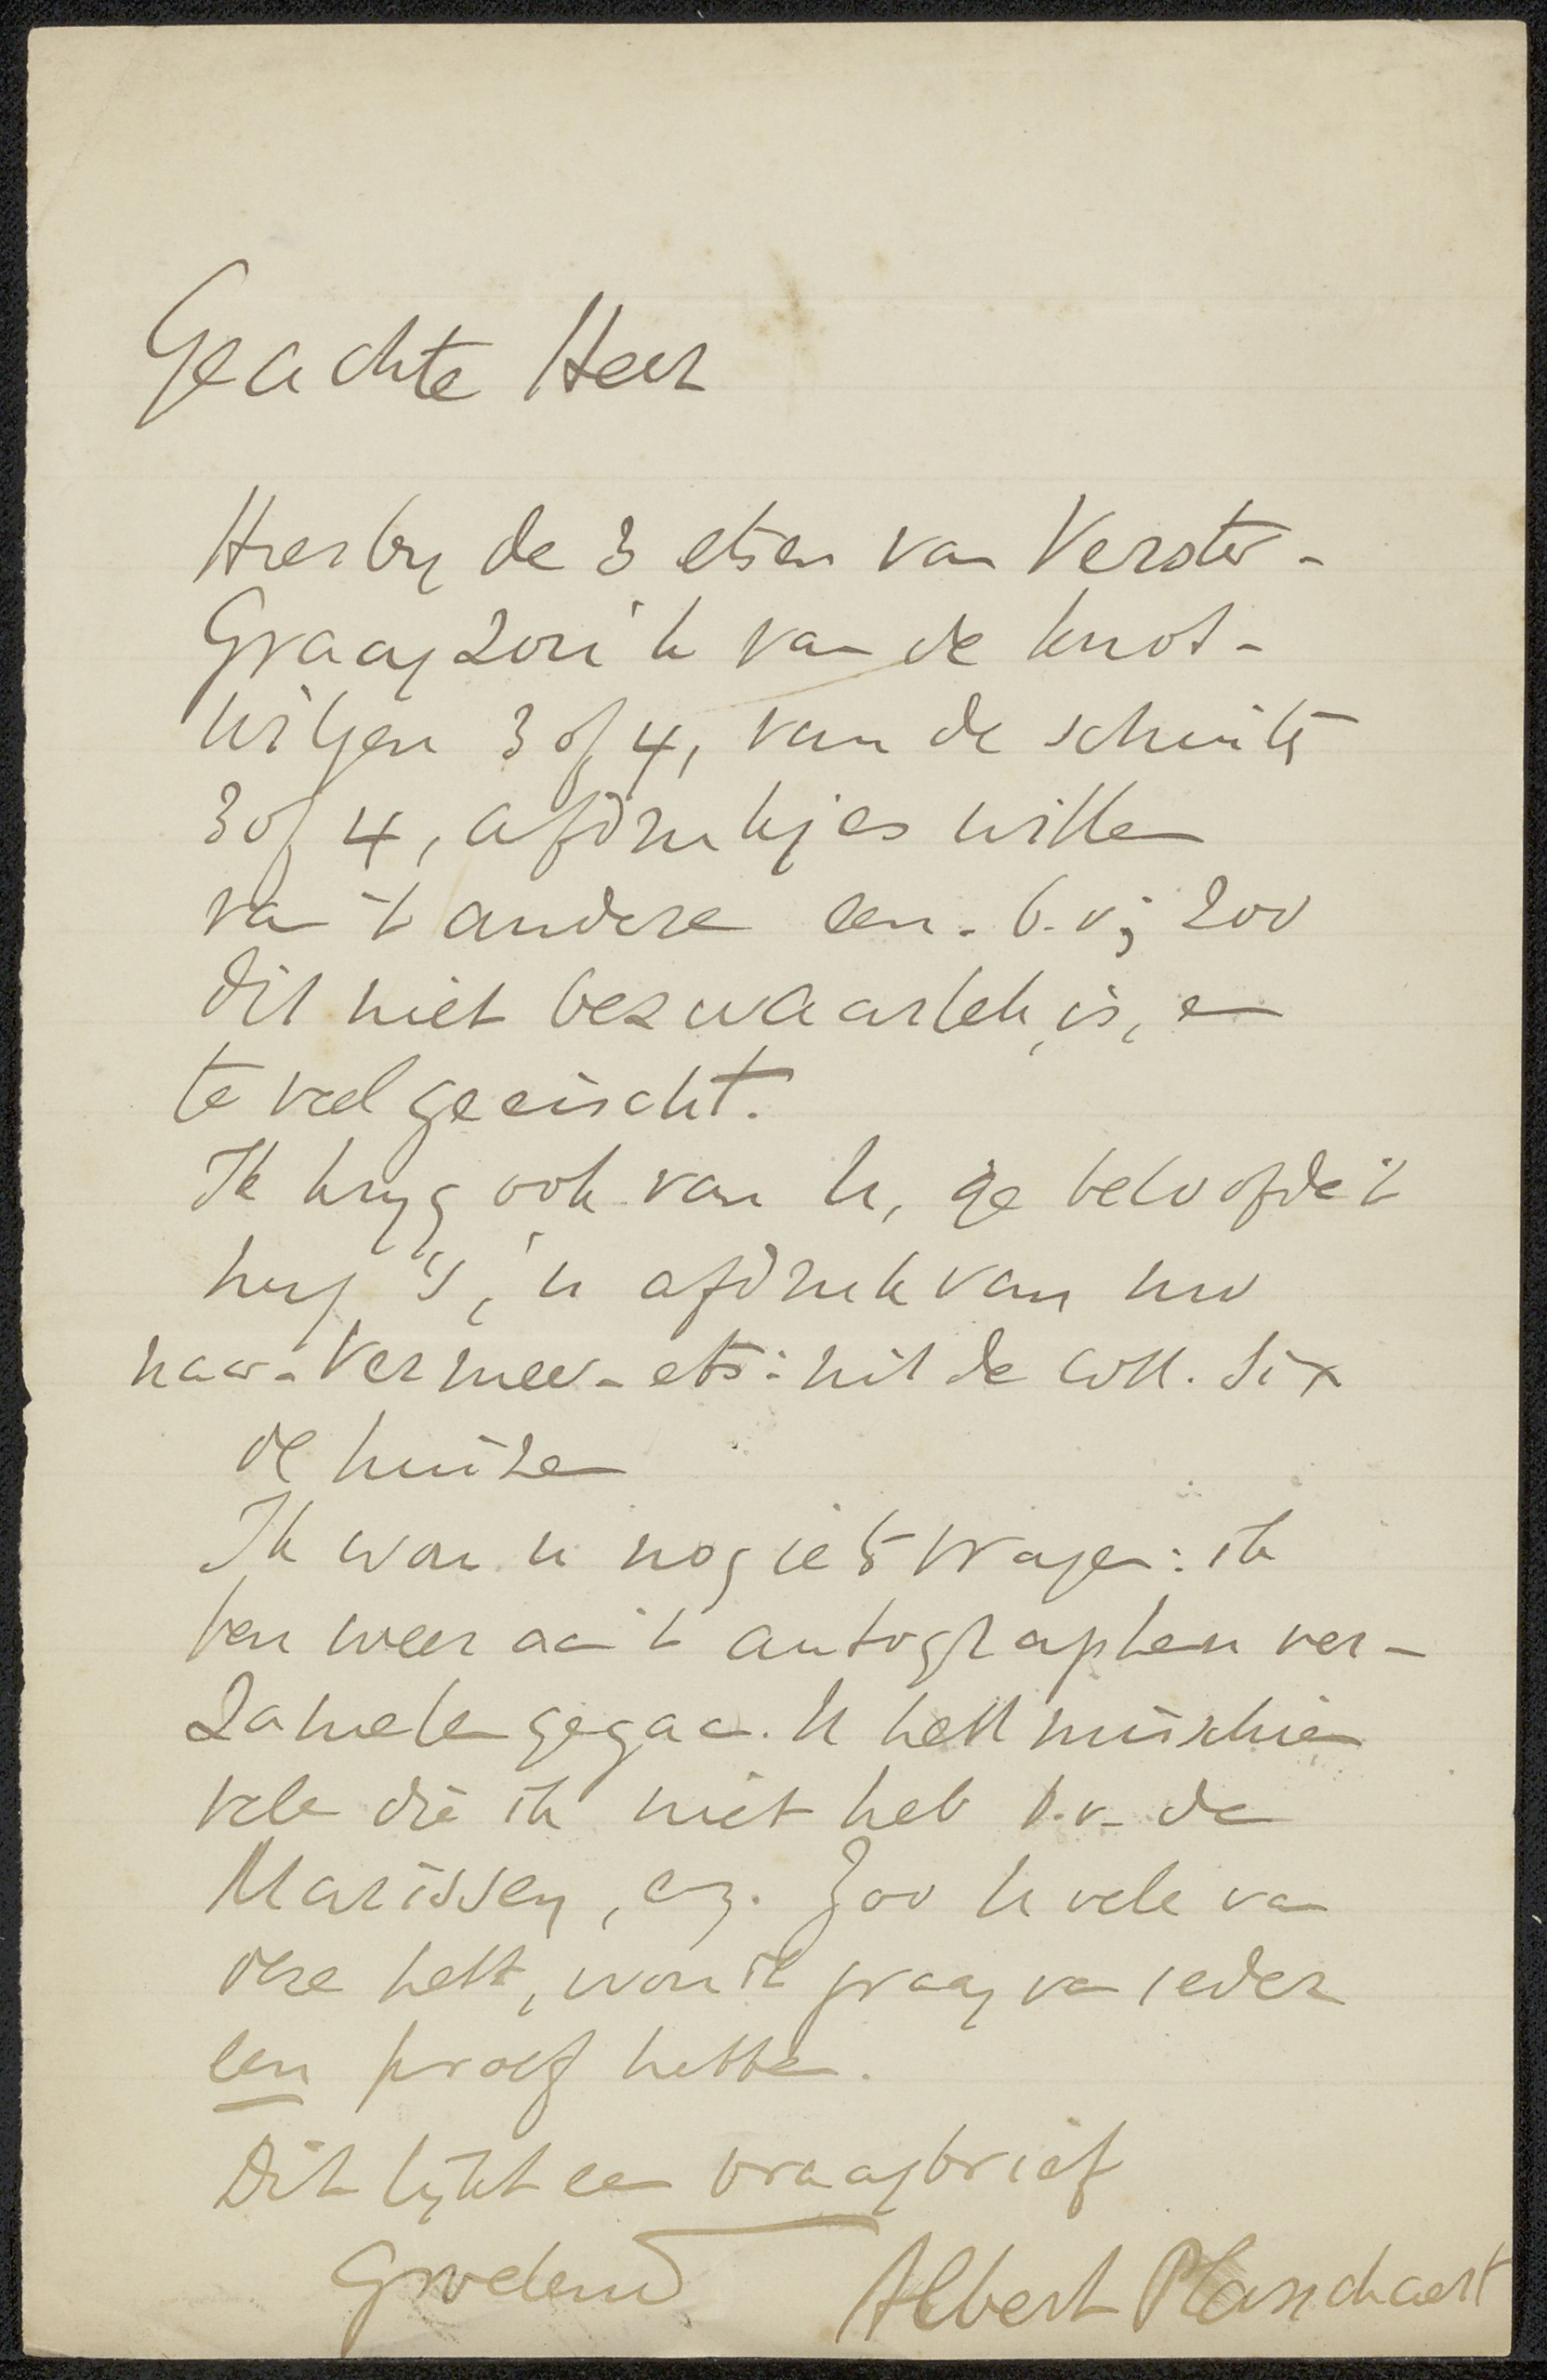 Geachte Heer
Hierby de 3 etsen van Verster -
Graag zou 'k van de knot-
wilgen 3 of 4, van de schuits
3 of 4, afdrukjes willen
van 't andere een. b.v; zoo
dit niet bezwaarlek is, en
te veel geeischt.
Ik kryg ook van U, ge beloofde 't
my 's, 'n afdruk van uw
naar-Vermeer-ets: uit de coll. Six
de huizen
Ik wou u nog iets vragen: ik
ben weer aan 't autographen ver-
zamelen gegaan. U hebt misschien
vele die ik niet heb b.v. de
Marissen, enz. Zoo U vele van
deze hebt, wou ik graag van ieder
een proef hebben.
Dit lykt een vraagbrief
Groetend Albert Plasschaert